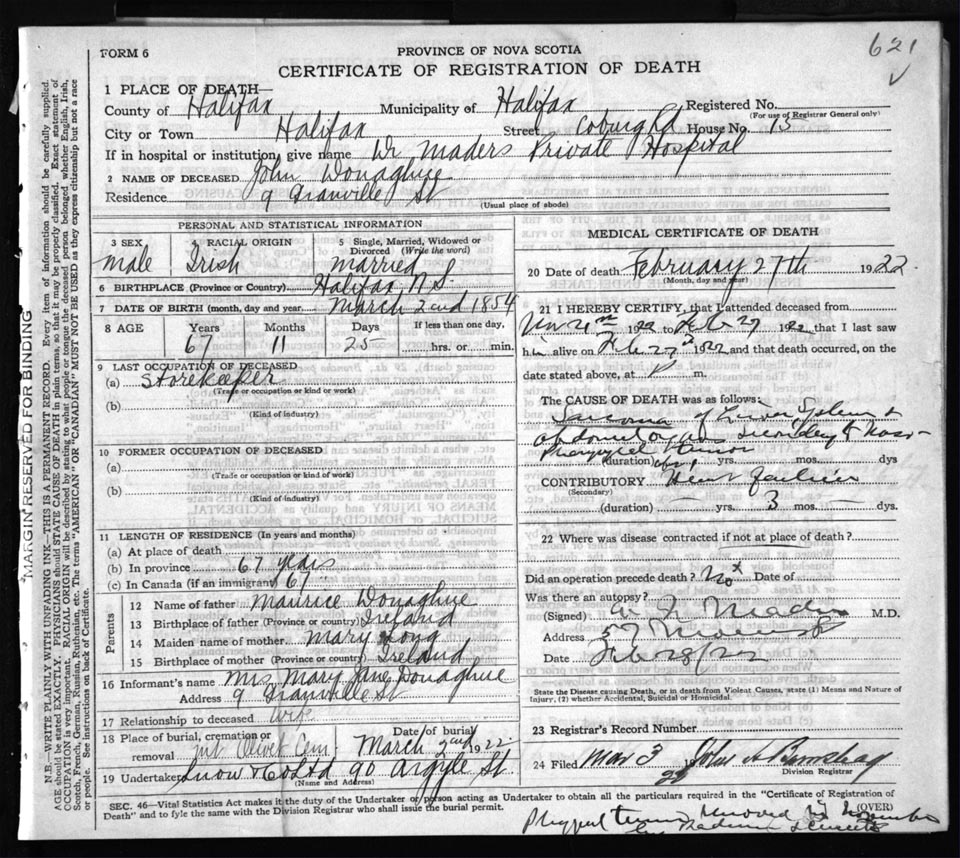 621
FORM 6
PROVINCE OF NOVA SCOTIA
CERTIFICATE OF REGISTRATION OF DEATH
1 PLACE OF DEATH—
County of Halifax Municipality of Halifax Registered No.
(For use of Registrar General only)
City or Town Halifax Street Coburg Rd House No. 15
If in hospital or institution, give name Dr Maders Private Hospital
2 NAME OF DECEASED John Donaghue
Residence 9 Granville St
(Usual place of abode)
PERSONAL AND STATISTICAL INFORMATION
3 SEX 4 RACIAL ORIGIN 5 Single, Married, Widowed or Divorced (Write the word)
male Irish married
6 BIRTHPLACE (Province or Country) Halifax N S.
7 DATE OF BIRTH (month, day and year) March 2nd 1854
8 AGE Years Months Days If less than one day,
67 11 25 hrs. or min.
9 LAST OCCUPATION OF DECEASED
(a) Storekeeper
(Trade or occupation or kind or work)
(b)
(Kind of industry)
10 FORMER OCCUPATION OF DECEASED
(a)
(Trade or occupation or kind of work)
(b)
(Kind of industry)
11 LENGTH OF RESIDENCE (In years and months)
(a) At place of death
(b) In province 67 years
(c) In Canada (if an immigrant) 67
Parents
12 Name of father Maurice Donaghue
13 Birthplace of father (Province or country) Ireland
14 Maiden name of mother Mary Long
15 Birthplace of mother (Province or country) Ireland
16 Informant's name Mrs Mary Jane Donaghue
Address 9 Granville St
17 Relationship to deceased Wife
18 Place of burial, cremation or removal Mt Olivet Cem. Date of burial March 2nd 1922.
19 Undertaker Snow & Co Ltd 90 Argyle St.
(Name and Address)
MEDICAL CERTIFICATE OF DEATH
20 Date of death February 27th 1922.
(Month, day and year)
21 I HEREBY CERTIFY, that I attended deceased from
1922 to Feb 27 1922 that I last saw
him alive on Feb 27th 1922 and that death occurred, on the
date stated above, at m.
The CAUSE OF DEATH was as follows:
Sarcoma of Liver Spleen &
Secondary to Naso-
Pharyngeal tumor
(duration) yrs. mos. dys
CONTRIBUTORY Heart failure
(Secondary)
(duration) yrs. 3 mos. dys.
22 Where was disease contracted if not at place of death?
Did an operation precede death? Not Date of
Was there an autopsy?
(Signed) Mader M.D.
Address 57 Morris St
Date
State the Disease causing Death, or in death from Violent Causes, state (1) Means and Nature of
Injury, (2) whether Accidental, Suicidal or Homicidal.
23 Registrar's Record Number
24 Filed Mar 3 22 John
Division Registrar
SEC. 46—Vital Statistics Act makes it the duty of the Undertaker or person acting as Undertaker to obtain all the particulars required in the "Certificate of Registration of
Death" and to fyle the same with the Division Registrar who shall issue the burial permit. (OVER)
removed in November
MARGIN RESERVED FOR BINDING
N.B.—WRITE PLAINLY WITH UNFADING INK—THIS IS A PERMANENT RECORD. Every item of information should be carefully supplied.
AGE should be stated EXACTLY. PHYSICIANS should STATE CAUSE OF DEATH in plain terms, so that it may be properly classified. Exact statement of
OCCUPATION is very important. RACIAL ORIGIN will be described by stating to what people or tongue the deceased person belonged whether English, Irish,
Scotch, French, German, Russian, Ruthenian, etc. The terms "AMERICAN" OR "CANADIAN" MUST NOT BE USED as they express citizenship but not a race
or people. See instructions on back of Certificate.